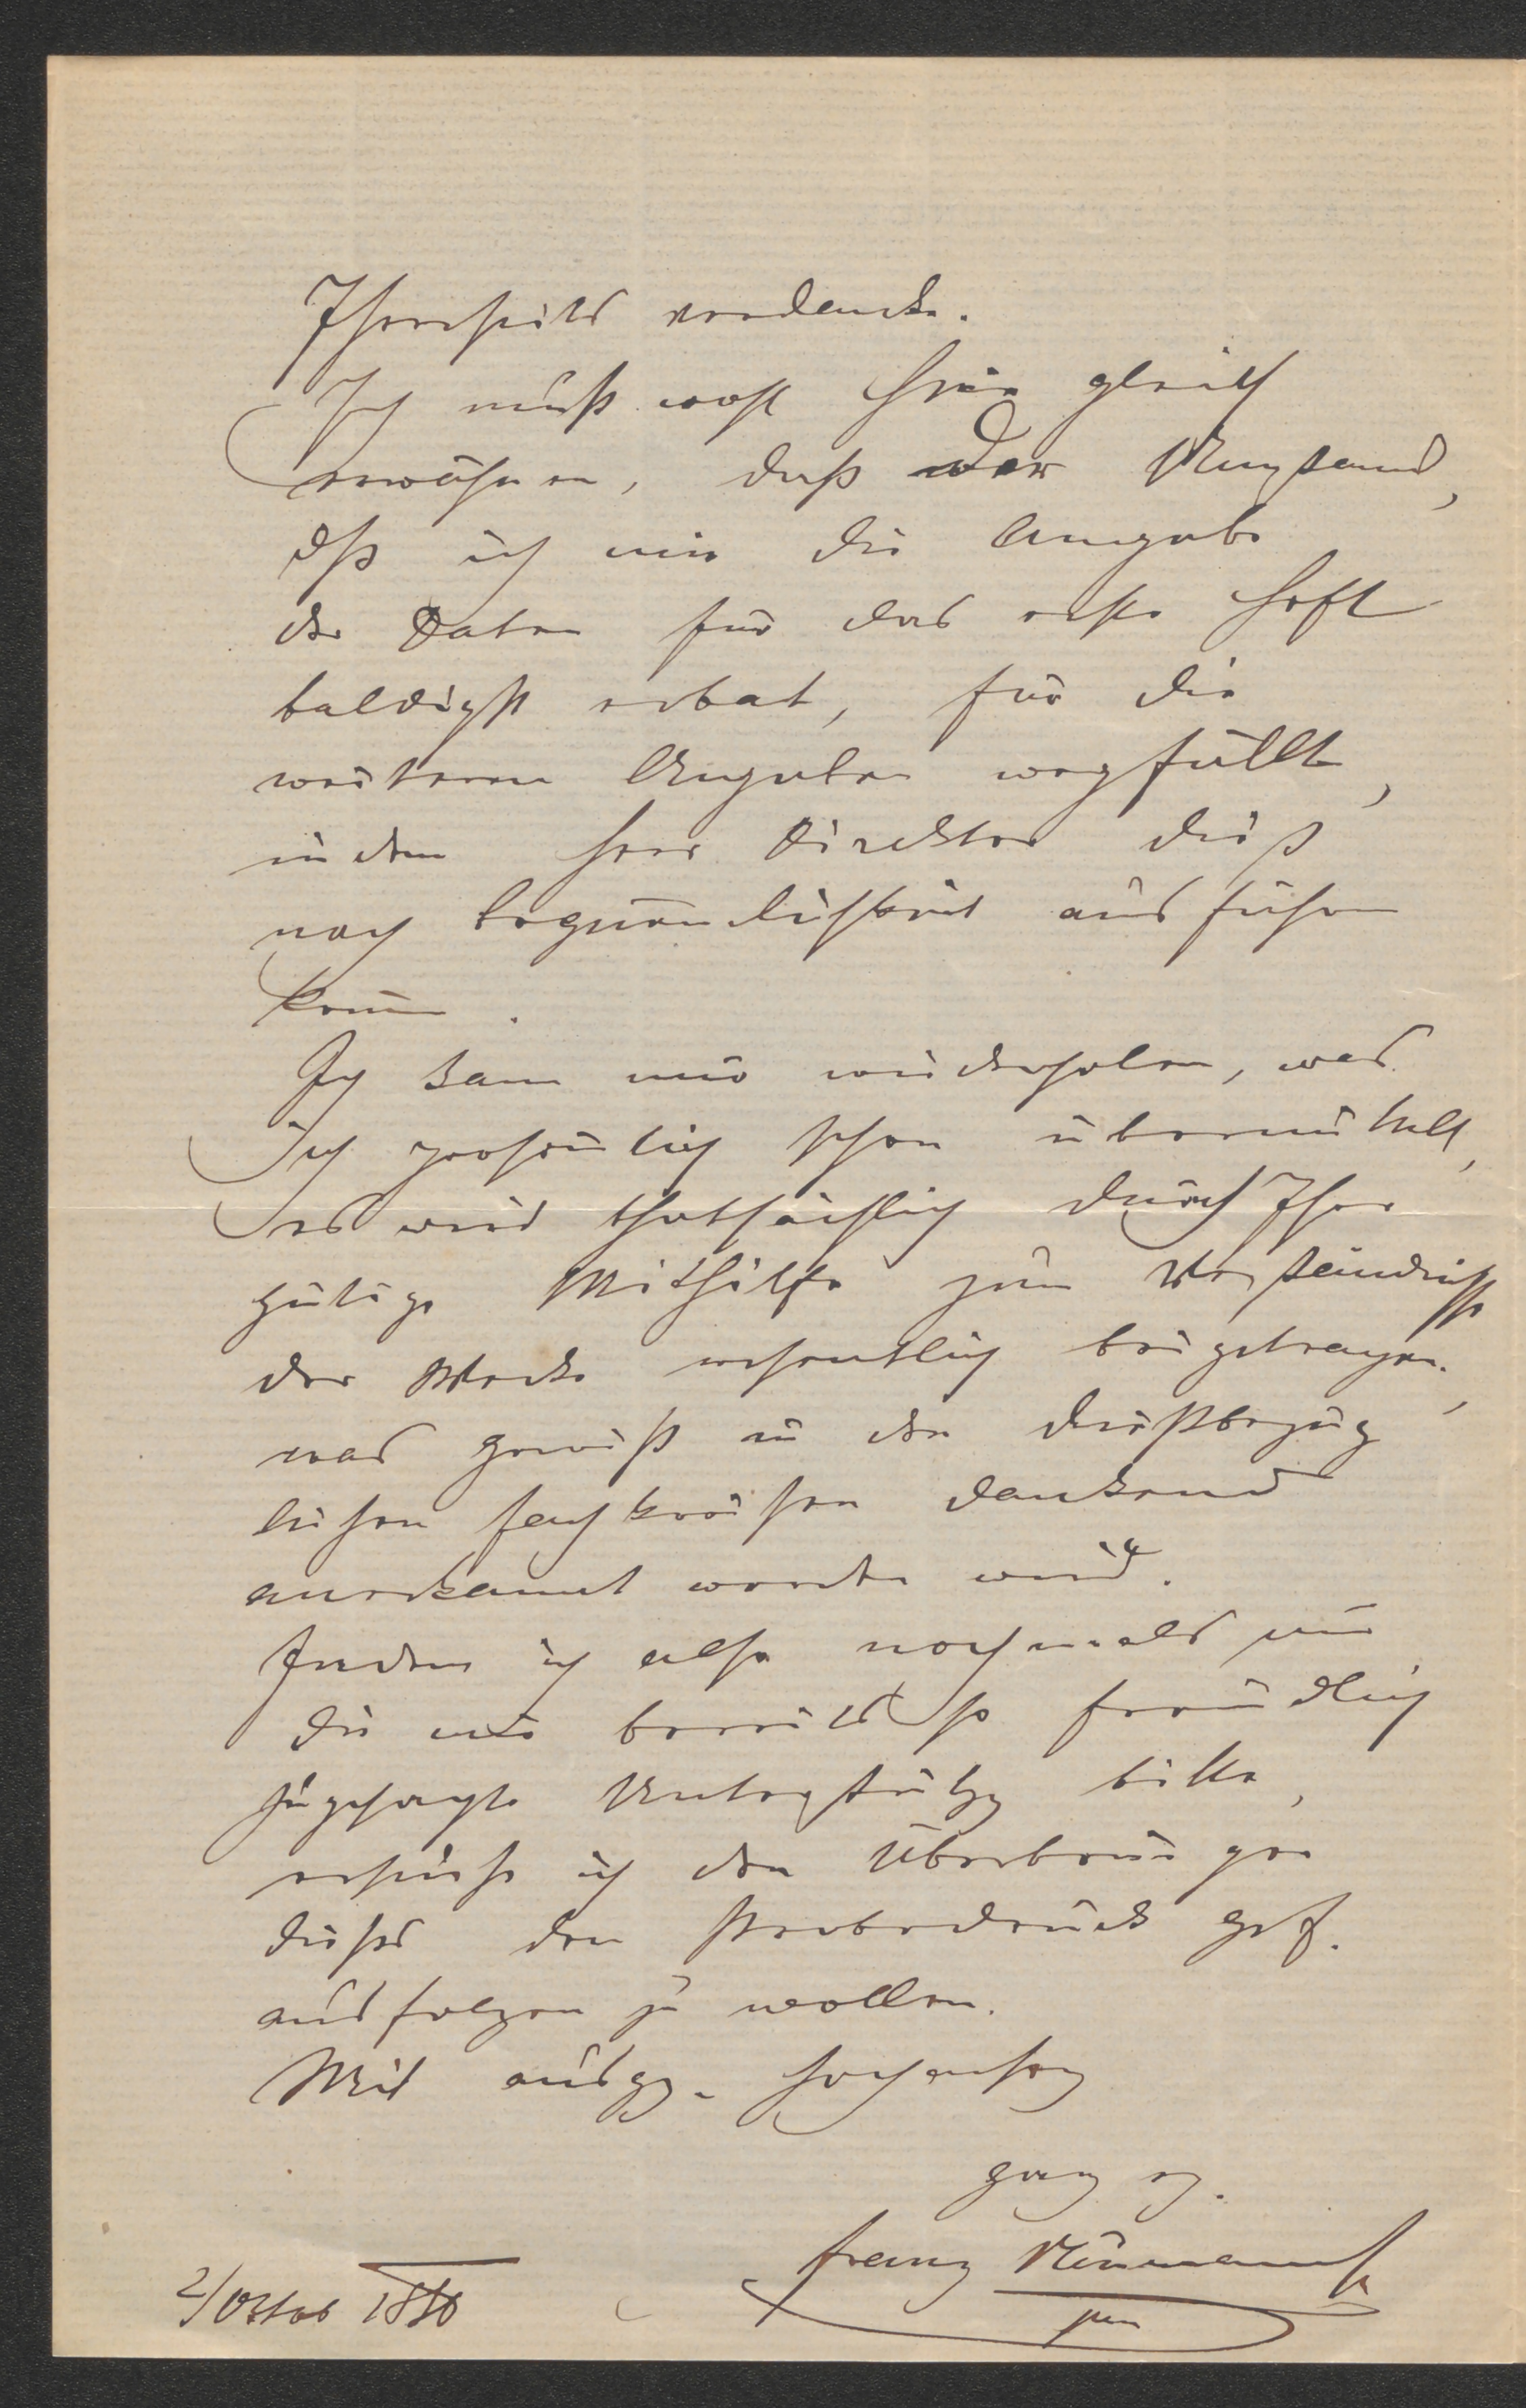 Ihrerseits verdanke.
Ich muß wohl hier gleich
erwähnen, daß der Umstand,
dß ich mir die Angabe
der Daten für das erste Heft
baldigst erbat, für die
weiteren Angaben wegfällt,
indem Herr Direktor dieß
nach Bequemlichkeit ausführen
können.
Ich kann nur wiederholen, was
Ich persönlich schon übermittelt,
es wird thatsächlich durch Ihre
gütige Mithilfe zum Verständnisse
der Werke wesentlich beigetragen,
was gewiß in den dießbezüg
lichen Fachkreisen dankend
anerkannt werden wird.
Indem ich also nochmals um
die mir bereits so freundlich
zugesagte Unterstützg bitte,
ersuche ich den Überbringer
dieses den Probedruck gef.
ausfolgen zu wollen.
Mit ausgz. Hochachtg
ganz erg.
Franz Neumann
jun
2/Oktob